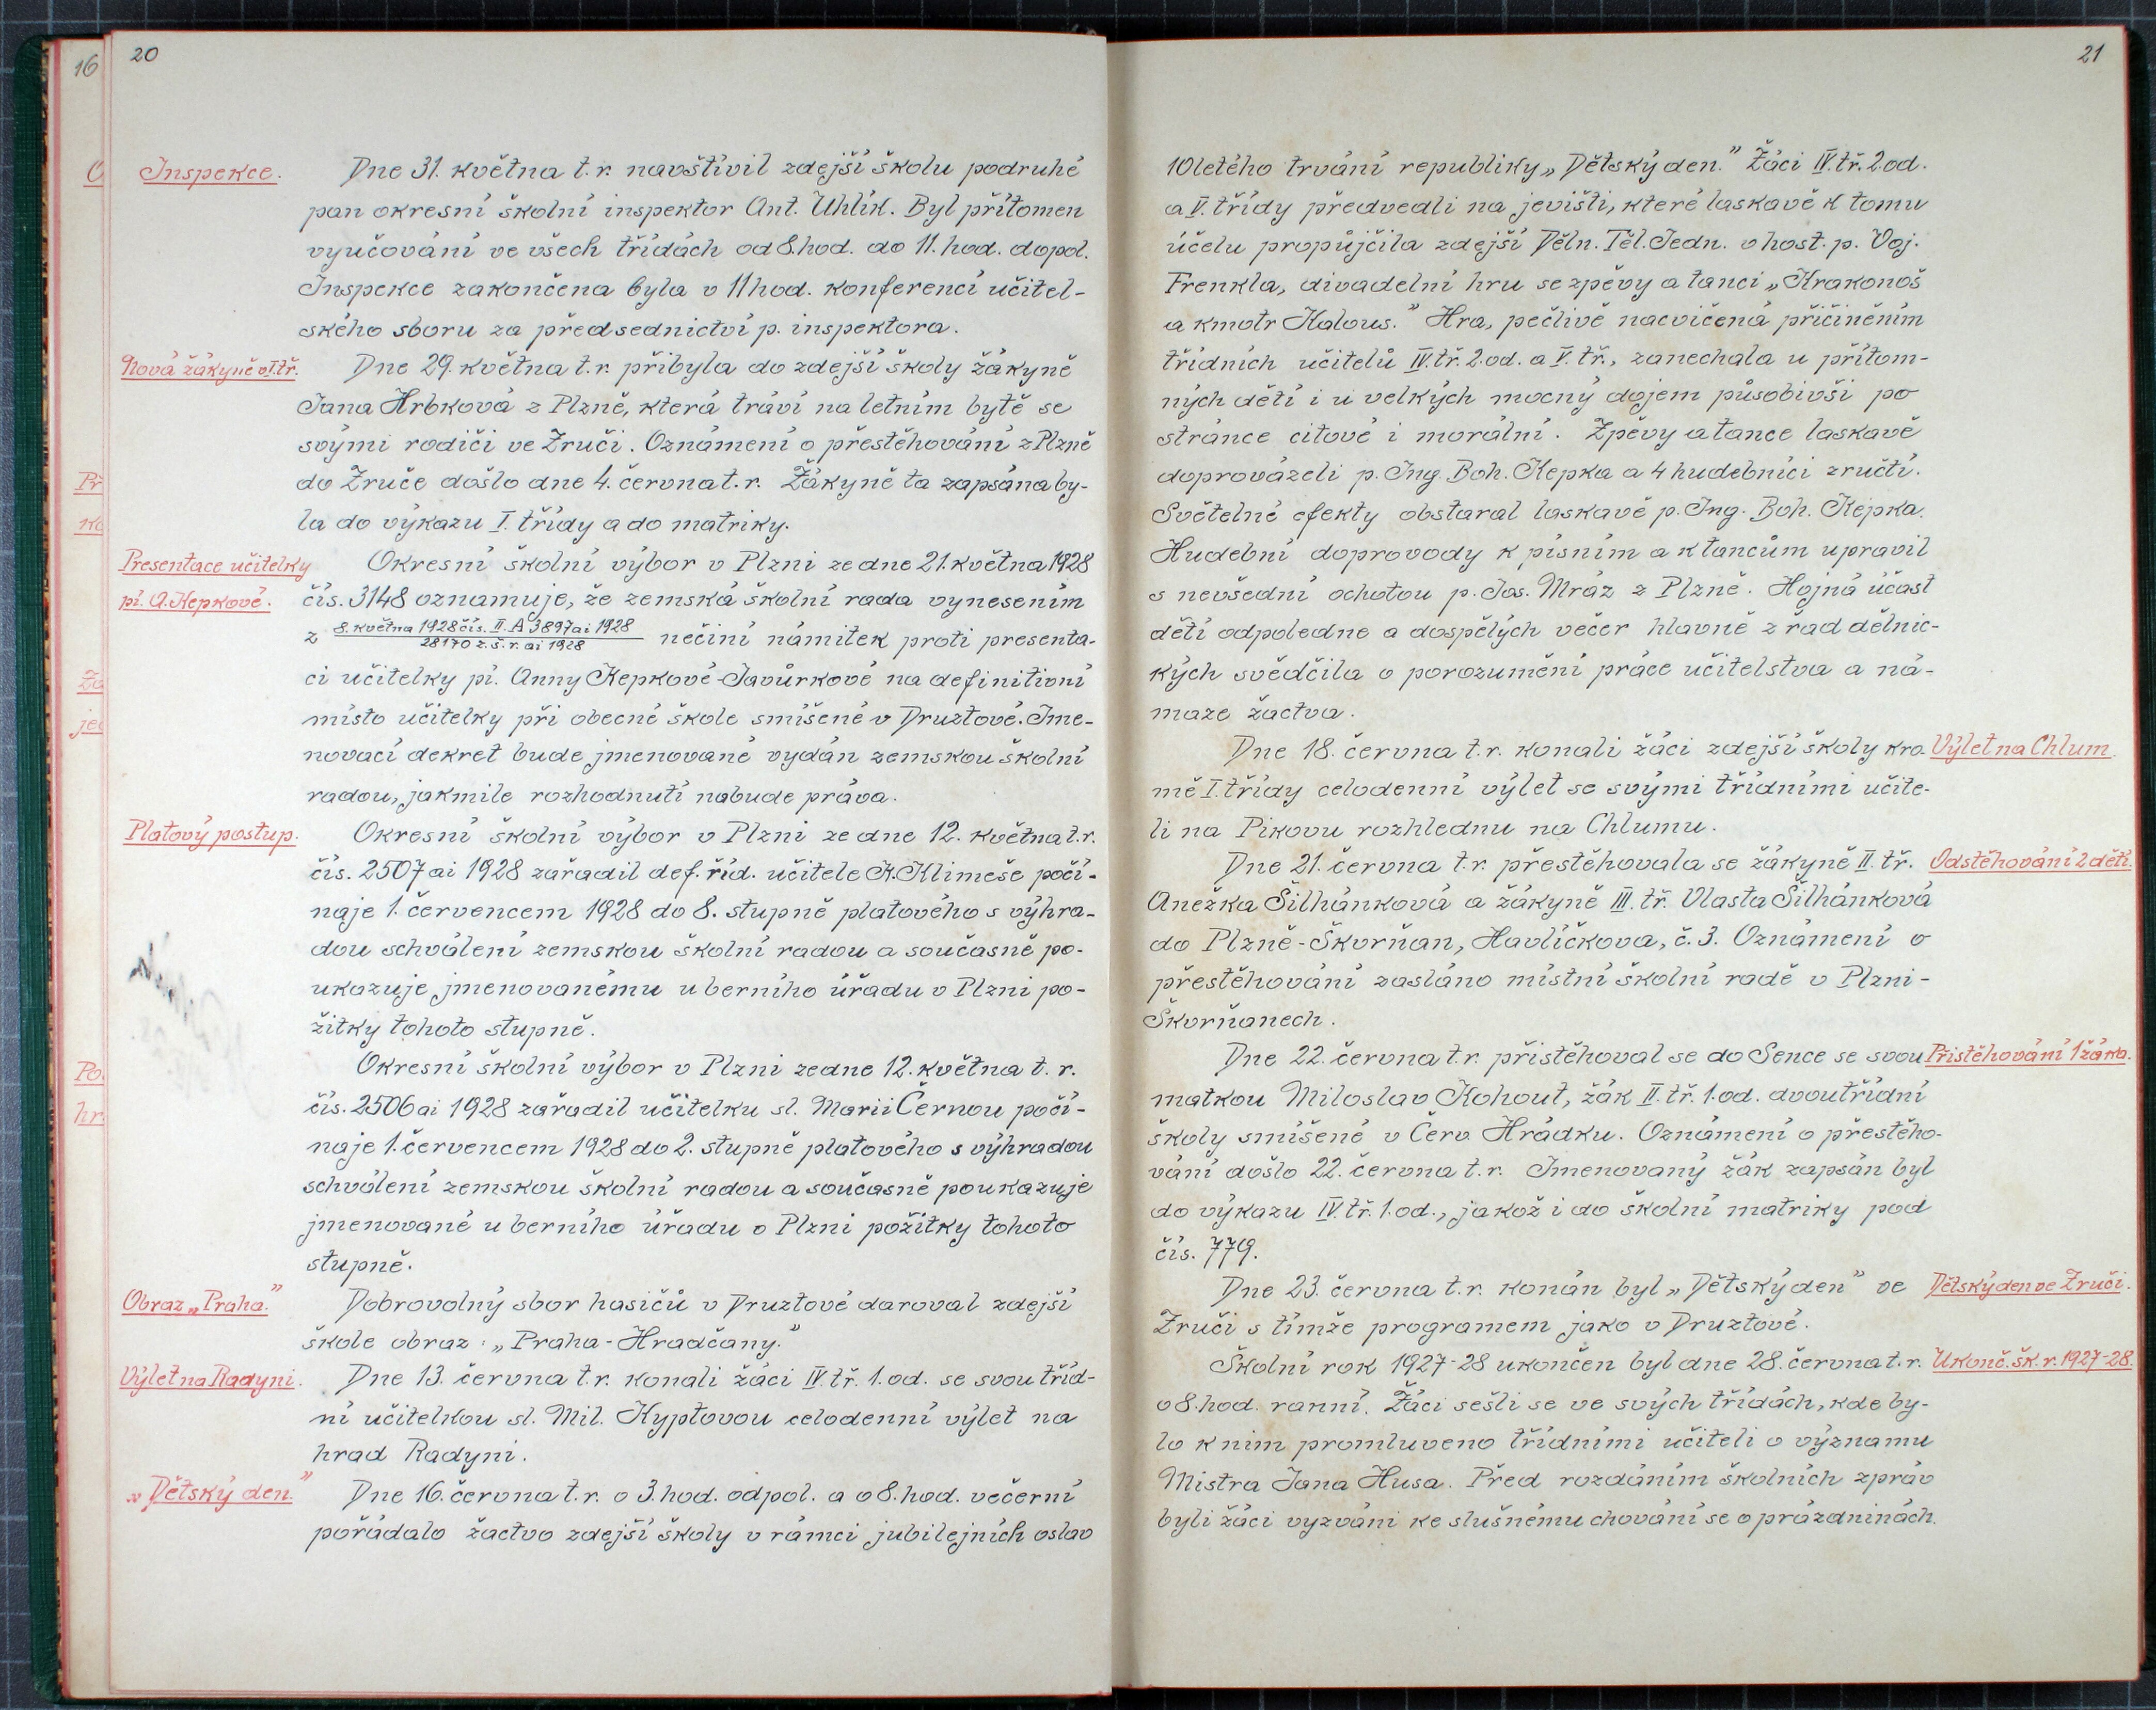 16
20
Inspekce.
Dne 31. května t.r. navštívil zdejší školu podruhé
pan okresní školní inspektor Ant. Uhlík. Byl přítomen
vyučování ve všech třídách od 8.hod. do 11. hod. dopol.
Inspekce zakončena byla v 11hod. konferencí učitel-
ského sboru za předsednictví p. inspektora.
Nová žákyně v I.tř.
Dne 29. května t.r. přibyla do zdejší školy žákyně
Jana Hrbková z Plzně, která tráví na letním bytě se
svými rodiči ve Zruči. Oznámení o přestěhování z Plzně
do Zruče došlo dne 4. června t.r. Žákyně ta zapsána by-
la do výkazu I. třídy a do matriky.
Presentace učitelky
pí. A. Kepkové.
Okresní školní výbor v Plzni ze dne 21. května 1928
čís. 3148 oznamuje, že zemská školní rada vynesením
z 8. května 1928 čís. II. A 3897 ai 1928
28170 z.š.r. ai 1928 nečiní námitek proti presenta-
ci učitelky pí. Anny Kepkové-Javůrkové na definitivní
místo učitelky při obecné škole smíšené v Druztové. Jme-
novací dekret bude jmenované vydán zemskou školní
radou, jakmile rozhodnutí nabude práva.
Platový postup.
Okresní školní výbor v Plzni ze dne 12. května t.r.
čís. 2507 ai 1928 zařadil def. říd. učitele K. Klimeše počí-
naje 1. červencem 1928 do 8. stupně platového s výhra-
dou schválení zemskou školní radou a současně po-
ukazuje jmenovanému u berního úřadu v Plzni po-
žitky tohoto stupně.
Okresní školní výbor v Plzni ze dne 12. května t. r.
čís. 2506 ai 1928 zařadil učitelku sl. Marii Černou počí-
naje 1. červencem 1928 do 2. stupně platového s výhradou
schválení zemskou školní radou a současně poukazuje
jmenované u berního úřadu v Plzni požitky tohoto
stupně.
Obraz „Praha.”
Dobrovolný sbor hasičů v Druztové daroval zdejší
škole obraz: „Praha-Hradčany.”
Výlet na Radyni.
Dne 13. června t.r. konali žáci IV. tř. 1. od. se svou tříd-
ní učitelkou sl. Mil. Kyptovou celodenní výlet na
hrad Radyni.
„Dětský den.”
Dne 16. června t.r. o 3. hod. odpol. a o 8. hod. večerní
pořádalo žactvo zdejší školy v rámci jubilejních oslav
21
10letého trvání republiky „Dětský den.” Žáci IV. tř. 2.od.
a V. třídy předvedli na jevišti, které laskavě k tomu
účelu propůjčila zdejší Děln. Těl. Jedn. v host. p. Voj.
Frenkla, divadelní hru se zpěvy a tanci „Krakonoš
a kmotr Kalous.” Hra, pečlivě nacvičená přičiněním
třídních učitelů IV.tř. 2.od. a V. tř., zanechala u přítom-
ných dětí i u velkých mocný dojem působivší po
stránce citové i morální. Zpěvy a tance laskavě
doprovázeli p. Ing. Boh. Kepka a 4 hudebníci zručtí.
Světelné efekty obstaral laskavě p. Ing. Boh. Kepka.
Hudební doprovody k písním a k tancům upravil
s nevšední ochotou p. Jos. Mráz z Plzně. Hojná účast
dětí odpoledne a dospělých večer hlavně z řad dělnic-
kých svědčila o porozumění práce učitelstva a ná-
maze žactva.
Dne 18. června t.r. konali žáci zdejší školy kro-
Výlet na Chlum.
mě I. třídy celodenní výlet se svými třídními učite-
li na Pikovu rozhlednu na Chlumu.
Dne 21. června t.r. přestěhovala se žákyně II. tř.
Odstěhování 2 dětí.
Anežka Šilhánková a žákyně III. tř. Vlasta Šilhánková
do Plzně-Škvrňan, Havlíčkova, č. 3. Oznámení o
přestěhování zasláno místní školní radě v Plzni-
Škvrňanech.
Dne 22. června t.r. přistěhoval se do Sence se svou
Přistěhování 1 žáka.
matkou Miloslav Kohout, žák II. tř. 1. od. dvoutřídní
školy smíšené v Červ. Hrádku. Oznámení o přestěho-
vání došlo 22. června t.r. Jmenovaný žák zapsán byl
do výkazu IV. tř. 1. od., jakož i do školní matriky pod
čís. 779.
Dne 23. června t.r. konán byl „Dětský den” ve
Dětský den ve Zruči.
Zruči s tímže programem jako v Druztové.
Školní rok 1927-28 ukončen byl dne 28. června t. r.
Ukonč. šk. r. 1927-28.
o 8. hod. ranní. Žáci sešli se ve svých třídách, kde by-
lo k nim promluveno třídními učiteli o významu
Mistra Jana Husa. Před rozdáním školních zpráv
byli žáci vyzváni ke slušnému chování se o prázdninách.